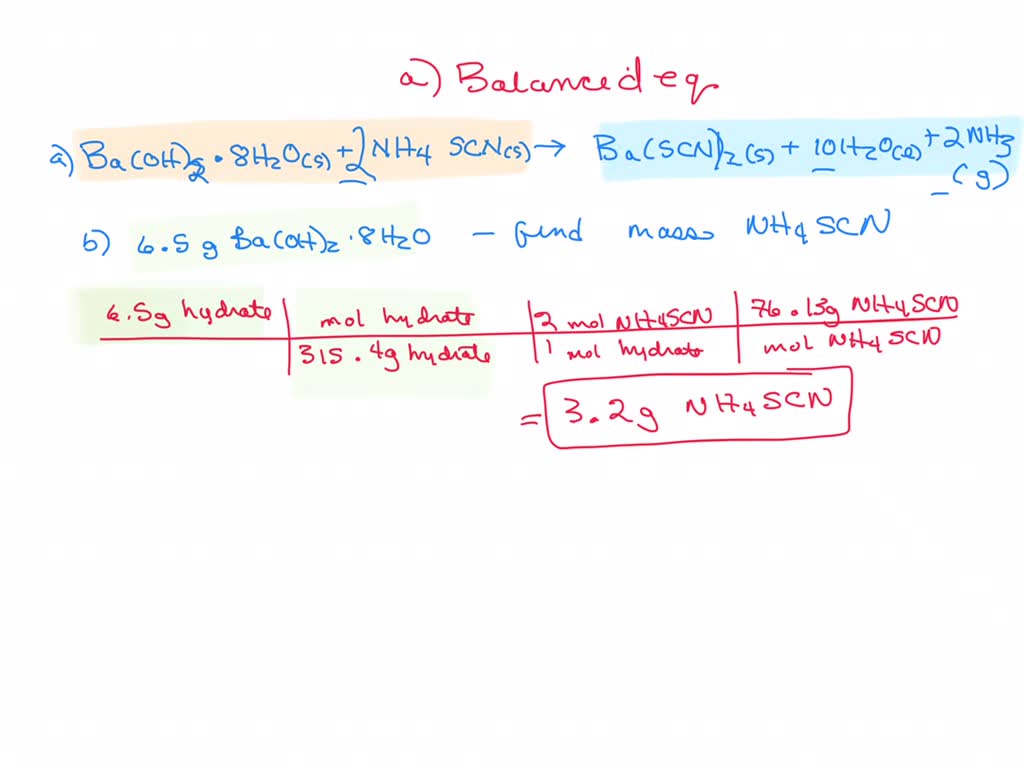 a) Balanced eq
a) Ba(OH)2 · 8H2O(s) + 2 NH4 SCN(s) → Ba(SCN)2 (s) + 10H2O(l) + 2 NH3 (g)
b) 6.5 g Ba(OH)2 · 8H2O – find mass NH4 SCN
6.5g hydrate | mol hydrate | 2 mol NH4SCN | 76.13g NH4SCN
315.4g hydrate | 1 mol hydrate | mol NH4SCN
= 3.2g NH4SCN